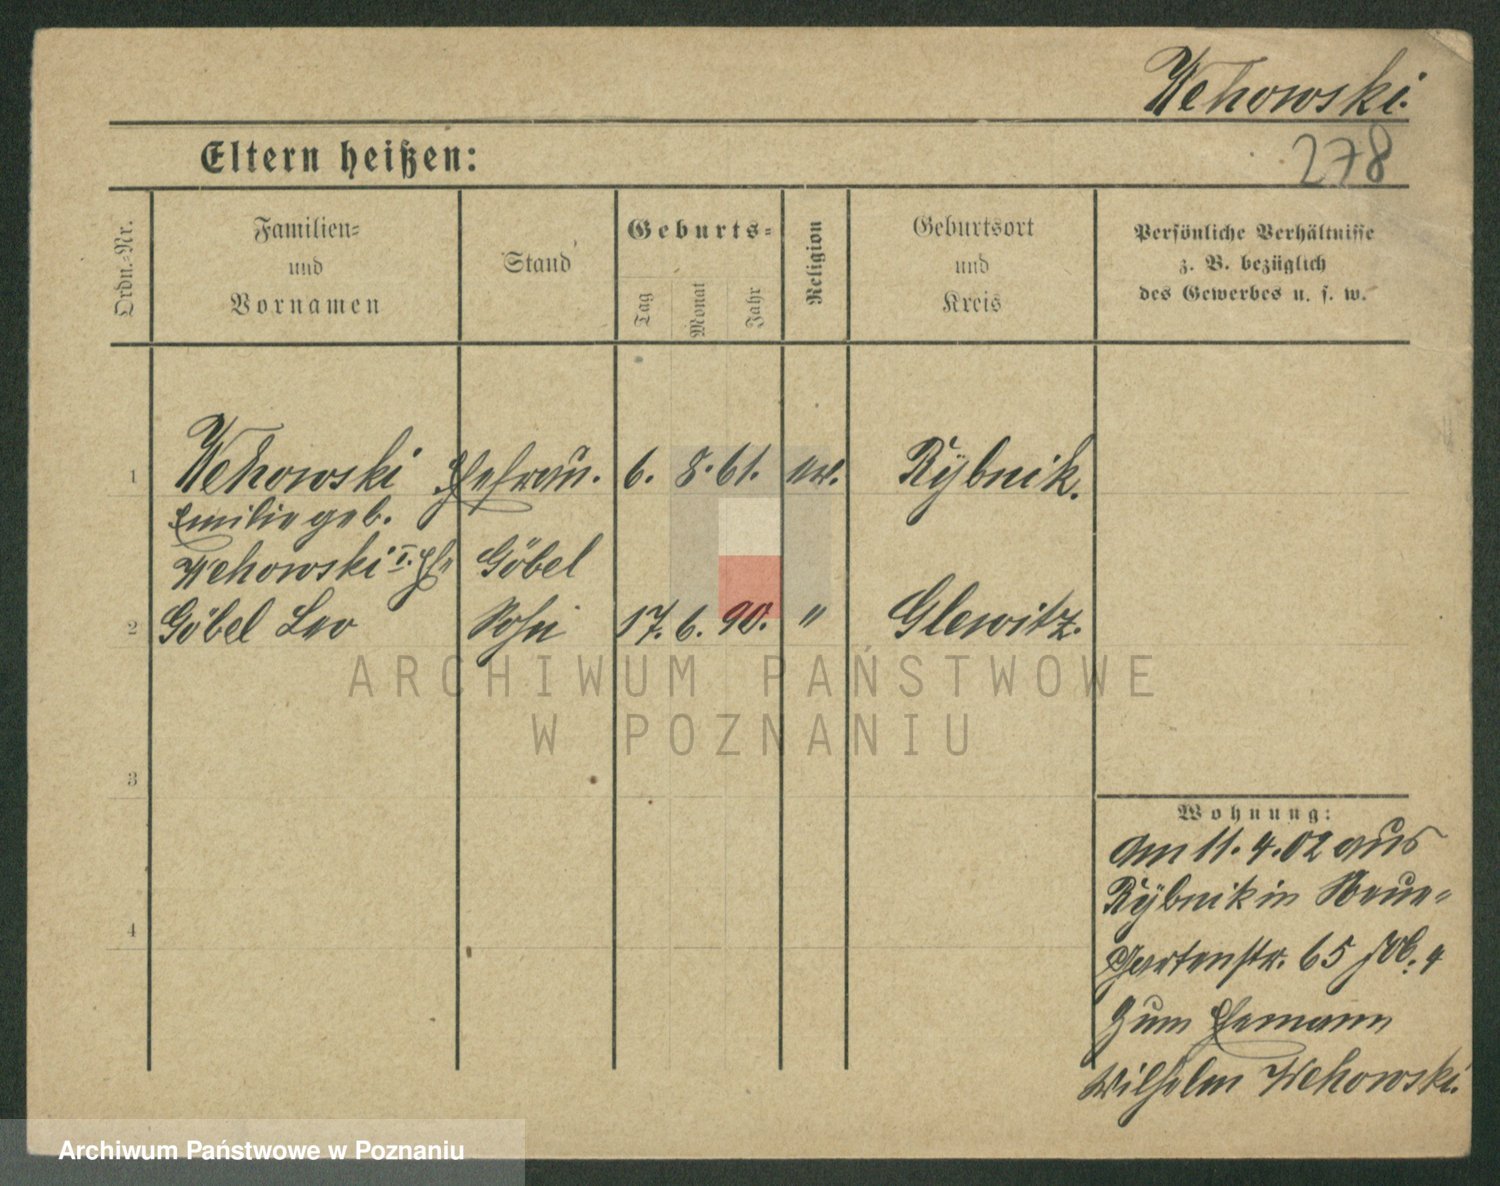 Wehowski.
Eltern heißen:
278
Ordn.-Nr.
Familien-
und
Vornamen
Stand
Geburts-
Tag
Monat
Jahr
Religion
Geburtsort
und
Kreis
Persönliche Verhältnisse
z. B. bezüglich
des Gewerbes u. s. w.
1 Wehowski Ehefrau. 6. 8. 61. ev. Rybnik.
Emilie geb.
Wehowski I. Eh Göbel
2 Göbel Leo Sohn 17. 6. 90. " Glewitz.
ARCHIWUM PAŃSTWOWE
W POZNANIU
3
4
Wohnung:
Am 11.4.02 aus
Rybnik in Neue-
Gartenstr. 65
zum Ehemann
Wilhelm Wehowski.
Archiwum Państwowe w Poznaniu